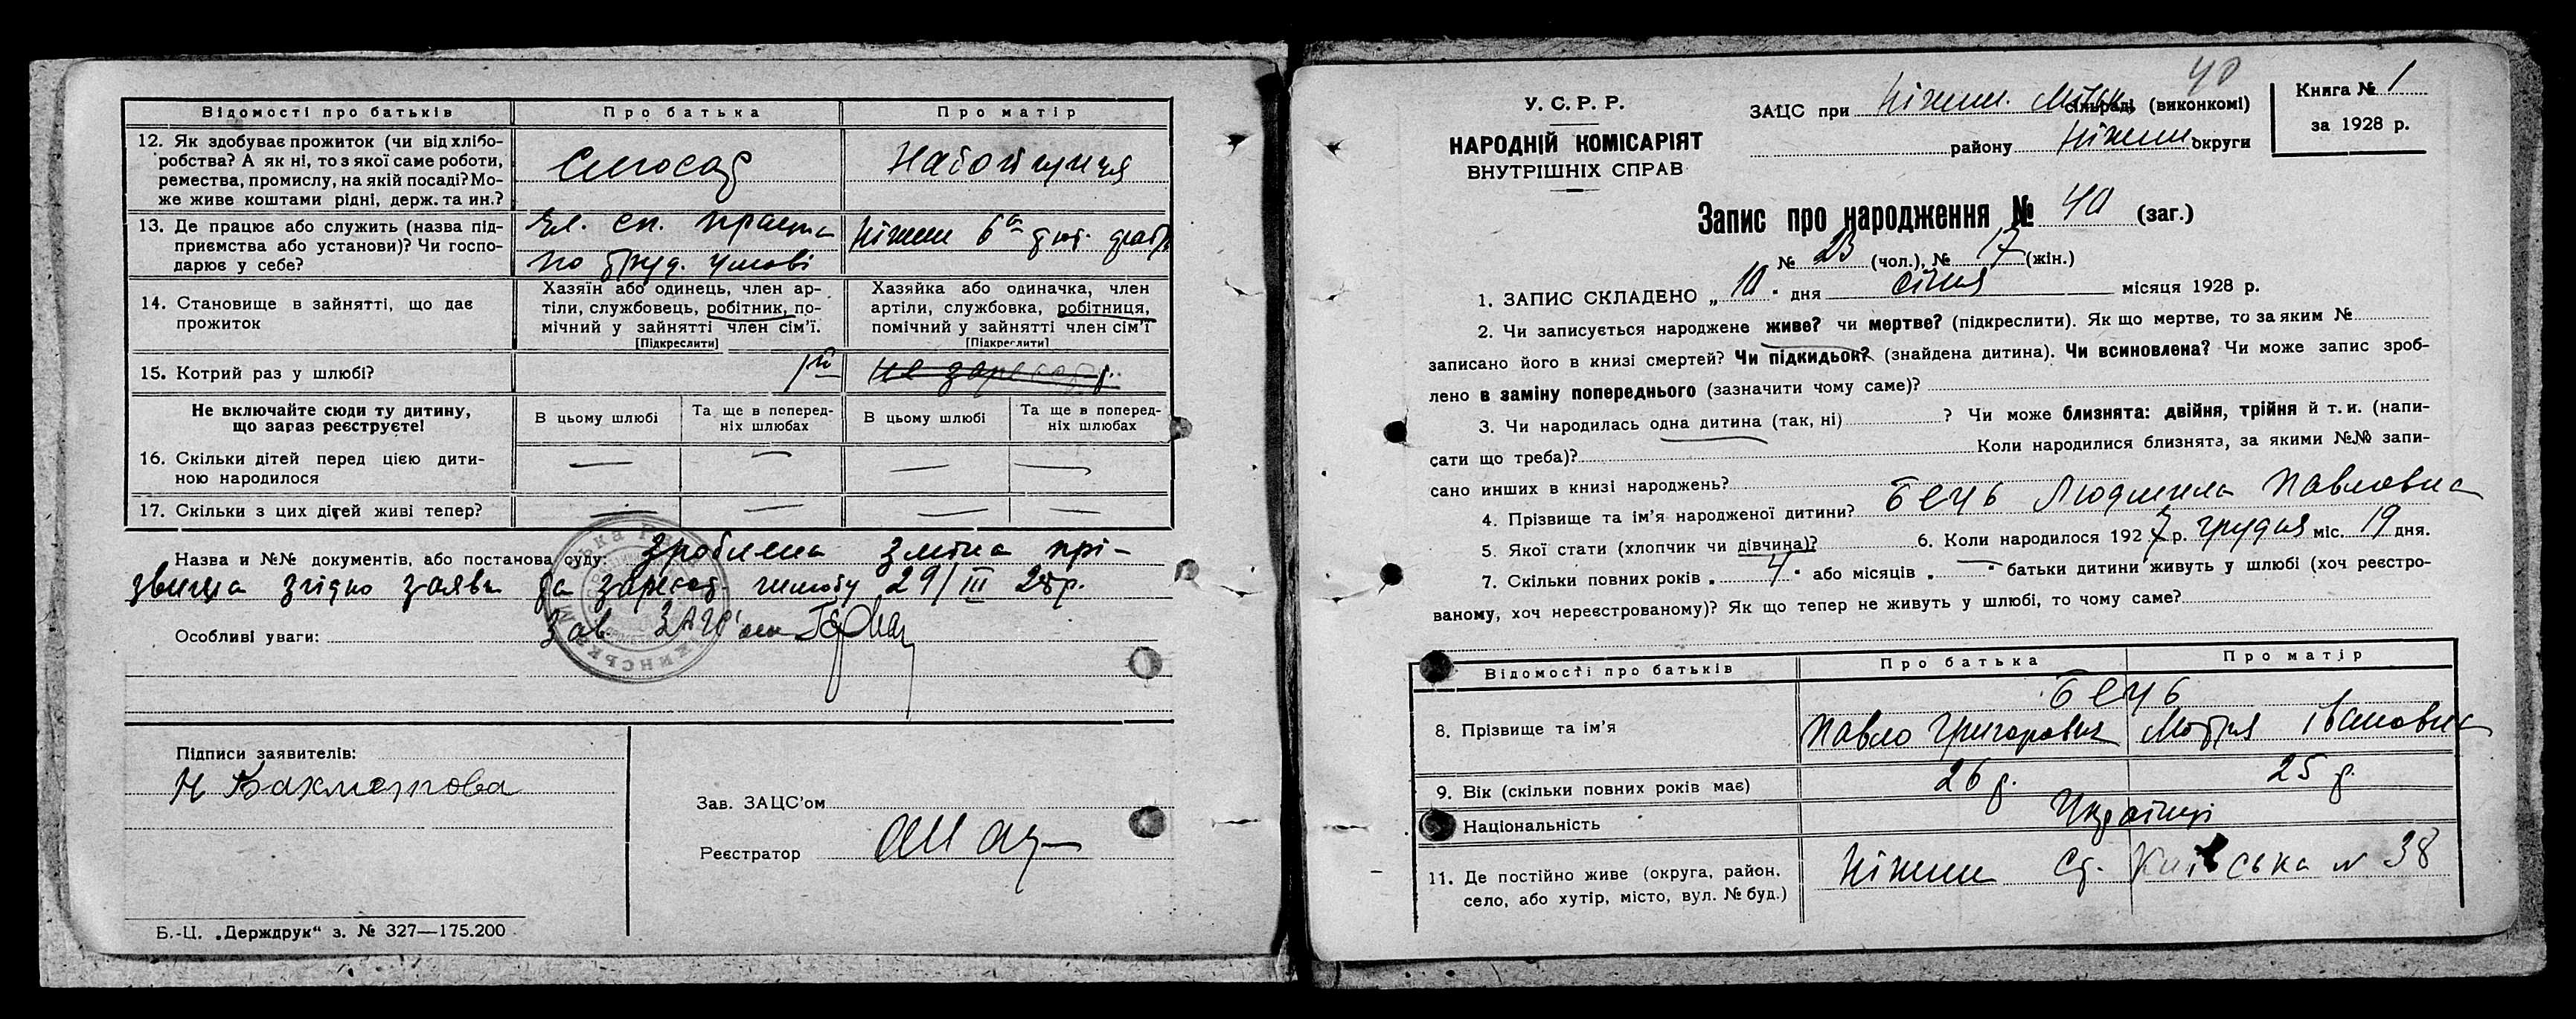 Відомості про батьків Про батька Про матір
12. Як здобуває прожиток (чи від хлібо-
робства? А як ні, то з якої саме роботи,
ремества, промислу, на якій посаді? Мо-
же живе коштами рідні, держ. та ин.?
Слюсар Набойщиця
13. Де працює або служить (назва під-
приємства або установи)? Чи госпо-
дарює у себе?
по труд. умові
Ніжин 6а
14. Становище в зайнятті, що дає
прожиток
Хазяїн або одинець, член ар-
тіли, службовець, робітник, по-
мічний у зайнятті член сім'ї.
[Підкреслити]
Хазяйка або одиначка, член
артіли, службовка, робітниця,
помічний у зайнятті член сім'ї
[Підкреслити]
15. Котрий раз у шлюбі? 1й не зареєстр.
Не включайте сюди ту дитину,
що зараз реєструєте!
В цьому шлюбі
Та ще в поперед-
ніх шлюбах
В цьому шлюбі
Та ще в поперед-
ніх шлюбах
16. Скільки дітей перед цією дити-
ною народилося — — — —
17. Скільки з цих дітей живі тепер? — — — —
Назва и №№ документів, або постанова суду: зроблена зміна прі-
звища згідно заяви та зареєстр. шлюбу 29/III 28р.
Особливі уваги: Зав. ЗАГС'ом
Підписи заявителів:
Н Бахметова
Зав. ЗАЦС'ом
Реєстратор
Б.-Ц. „Держдрук“ з. № 327—175.200
40
У. С. Р. Р.
НАРОДНІЙ КОМІСАРІЯТ
ВНУТРІШНІХ СПРАВ
ЗАЦС при Ніжин. Міськ. сільраді (виконкомі)
району Ніжин округи
Книга № 1
за 1928 р.
Запис про народження № 40 (заг.)
№ 23 (чол.), № 17 (жін.)
1. ЗАПИС СКЛАДЕНО „ 10 “ дня січня місяця 1928 р.
2. Чи записується народжене живе? чи мертве? (підкреслити). Як що мертве, то за яким №
записано його в книзі смертей? Чи підкидьок? (знайдена дитина). Чи всиновлена? Чи може запис зроб-
лено в заміну попереднього (зазначити чому саме)?
3. Чи народилась одна дитина (так, ні) ? Чи може близнята: двійня, трійня й т. и. (напи-
сати що треба)? Коли народилися близнята, за якими №№ запи-
сано инших в книзі народжень?
4. Прізвище та ім'я народженої дитини? Бечь Людмила Павловна
5. Якої стати (хлопчик чи дівчина)? 6. Коли народилося 1927 р. грудня міс. 19 дня.
7. Скільки повних років „ 4 “ або місяців „ — “ батьки дитини живуть у шлюбі (хоч реєстро-
ваному, хоч нереєстрованому)? Як що тепер не живуть у шлюбі, то чому саме?
Відомості про батьків Про батька Про матір
Бечь
8. Прізвище та ім'я Павло Григорович Мотря Івановна
9. Вік (скільки повних років має) 26 р. 25 р.
Національність Українці
11. Де постійно живе (округа, район,
село, або хутір, місто, вул. № буд.)
Ніжин Ст. Київська № 38